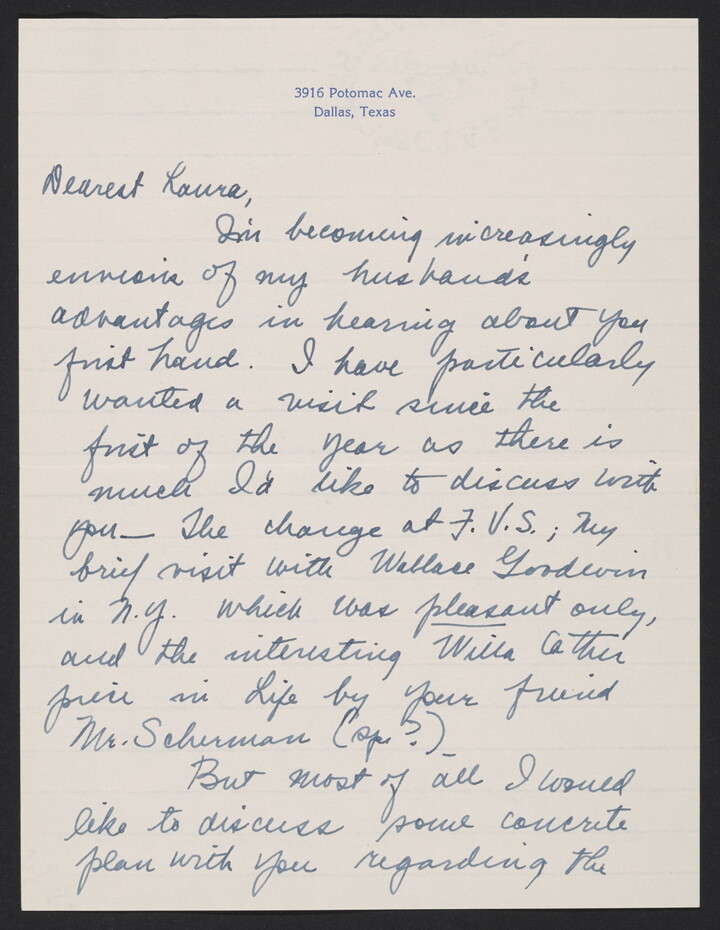 3916 Potomac Ave.
Dallas, Texas
Dearest Laura,
I'm becoming increasingly
envious of my husband's
advantages in hearing about you
first hand. I have particularly
wanted a visit since the
first of the year as there is
much I'd like to discuss with
you — The change at F.V.S.; my
brief visit with Wallace Goodwin
in N.Y. which was pleasant only,
and the interesting Willa Cather
piece in Life by your friend
Mr. Scherman (sp.?)
But most of all I would
like to discuss some concrete
plan with you regarding the